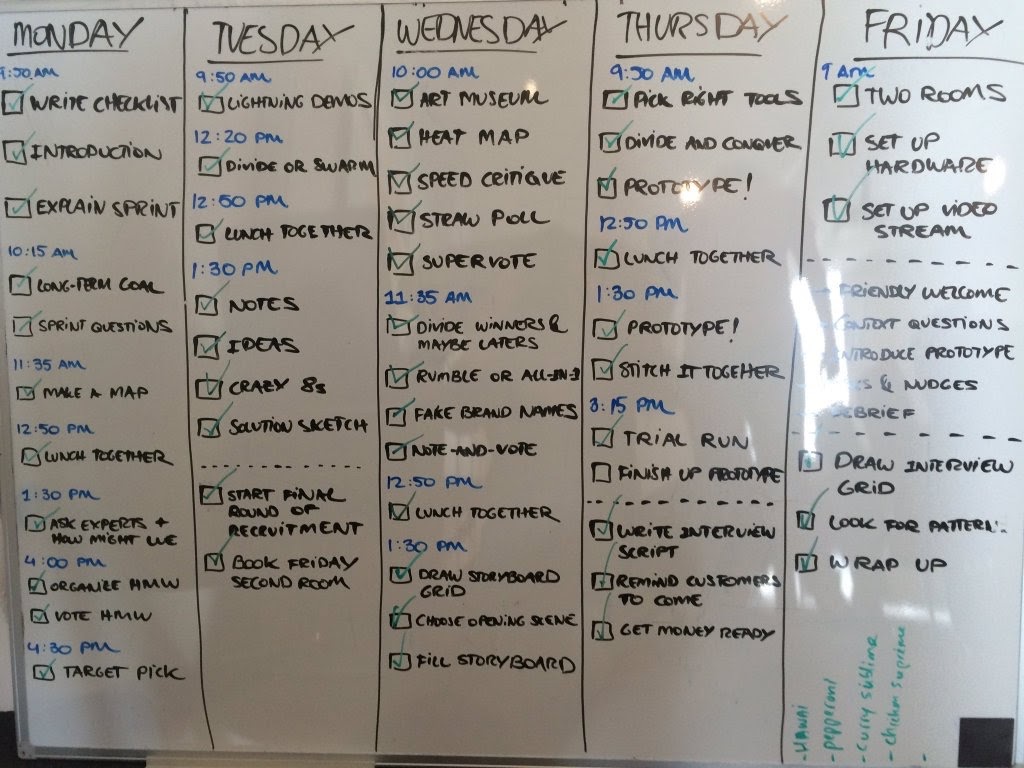 MONDAY
9:50 AM
WRITE CHECKLIST
INTRODUCTION
EXPLAIN SPRINT
10:15 AM
LONG-TERM GOAL
SPRINT QUESTIONS
11:35 AM
MAKE A MAP
12:50 PM
LUNCH TOGETHER
1:30 PM
ASK EXPERTS +
HOW MIGHT WE
4:00 PM
ORGANIZE HMW
VOTE HMW
4:30 PM
TARGET PICK
TUESDAY
9:50 AM
LIGHTNING DEMOS
12:20 PM
DIVIDE OR SWARM
12:50 PM
LUNCH TOGETHER
1:30 PM
NOTES
IDEAS
CRAZY 8s
SOLUTION SKETCH
START FINAL
ROUND OF
RECRUITMENT
BOOK FRIDAY
SECOND ROOM
WEDNESDAY
10:00 AM
ART MUSEUM
HEAT MAP
SPEED CRITIQUE
STRAW POLL
SUPERVOTE
11:35 AM
DIVIDE WINNERS &
MAYBE LATERS
RUMBLE OR ALL-IN-1
FAKE BRAND NAMES
NOTE-AND-VOTE
12:50 PM
LUNCH TOGETHER
1:30 PM
DRAW STORYBOARD
GRID
CHOOSE OPENING SCENE
FILL STORYBOARD
THURSDAY
9:50 AM
PICK RIGHT TOOLS
DIVIDE AND CONQUER
PROTOTYPE!
12:50 PM
LUNCH TOGETHER
1:30 PM
PROTOTYPE!
STITCH IT TOGETHER
3:15 PM
TRIAL RUN
FINISH UP PROTOTYPE
WRITE INTERVIEW
SCRIPT
REMIND CUSTOMERS
TO COME
GET MONEY READY
FRIDAY
9 AM
TWO ROOMS
SET UP
HARDWARE
SET UP VIDEO
STREAM
- FRIENDLY WELCOME
- CONTEXT QUESTIONS
INTRODUCE PROTOTYPE
& NUDGES
DEBRIEF
DRAW INTERVIEW
GRID
LOOK FOR PATTERN
WRAP UP
- HAWAI
- pepperoni
- curry sublime
- chicken supreme
-